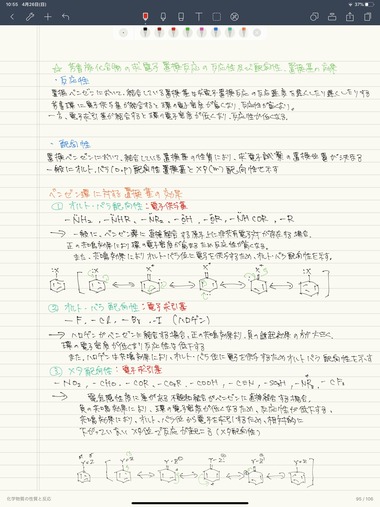 10:55 4月26日(日)
37%
☆ 芳香族化合物の求電子置換反応の反応性及び配向性、置換基の効果
・反応性
置換ベンゼンにおいて、結合している置換基は求電子置換反応の反応速度を良くしたり悪くしたりする
芳香環に電子供与基が結合すると環の電子密度が高くなり、反応性が高くなる。
一方、電子求引基が結合すると環の電子密度が低くなり、反応性が低くなる。
・配向性
置換ベンゼンにおいて、結合している置換基の性質により、求電子試薬の置換位置が決まる
一般にオルト-パラ(o,p)配向性置換基とメタ(m)配向性を示す
ベンゼン環に対する置換基の効果
① オルト・パラ配向性:電子供与基
-NH₂, -NHR, -NR₂, -OH, -OR, -NHCOR, -R
→ 一般に、ベンゼン環に直接結合する原子上に非共有電子対が存在する場合、
正の共鳴効果により環の電子密度が高まるため反応性が高くなる。
また、共鳴効果によりオルト・パラ位に電子を供与するため、オルト・パラ配向性を示す。
② オルト・パラ配向性:電子求引基
-F, -Cl, -Br, -I (ハロゲン)
→ ハロゲンがベンゼンに結合する場合、正の共鳴効果より、負の誘起効果の方が大きく、
環の電子密度が低くなり反応性も低下する
また、ハロゲンは共鳴効果により、オルト・パラ位に電子を供与するためオルト・パラ配向性を示す
③ メタ配向性:電子求引基
-NO₂, -CHO, -COR, -CO₂R, -COOH, -CN, -SO₃H, -NR₃, -CF₃
→ 電気陰性度に差がある不飽和結合がベンゼンに直接結合する場合、
負の共鳴効果により、環の電子密度が低くなるため、反応性が低下する。
共鳴効果により、オルト・パラ位から電子を求引するため、相対的に
下がっていないメタ位で反応が起こる(メタ配向性)
化学物質の性質と反応